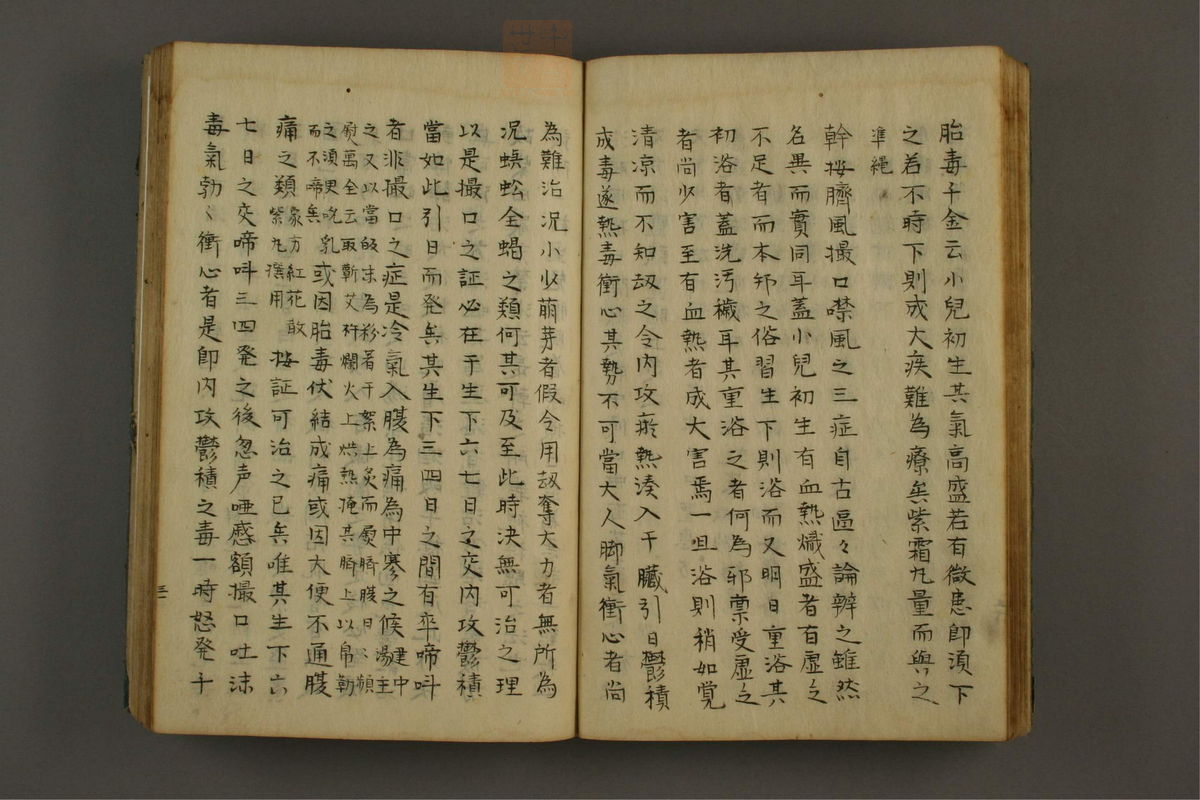 胎毒千金云小児初生其氣高盛若有微患即須下
之若不時下則成大疾難為療矣紫霜丸量而與之
準縄
幹按臍風撮口噤風之三症自古區々論辨之雖然
名異而實同耳蓋小児初生有血熱熾盛者有虚之
不足者而本邦之俗習生下則浴而又明日重浴其
初浴者蓋洗汚穢耳其重浴之者何為邪禀受虚之
者尚少害至有血熱者成大害焉一旦浴則稍如覚
清凉而不知刼之令内攻瘀熱湊入于臓引日鬱積
成毒遂熱毒衝心其勢不可當大人脚氣衝心者尚
為難治况小少萠芽者假令用刼奪大力者無所為
况蜈蚣全蝎之類何其可及至此時决無可治之理
以是撮口之証必在于生下六七日之交内攻鬱積
當如此引日而発矣其生下三四日之間有卒啼呌
者非撮口之症是冷氣入腹為痛為中寒之候建中湯主
之又以當皈末為粉着于絮上炙而熨臍腹日〻頻
熨萬全云取蘄艾杵爛火上烘熱掩其臍上以帛勒
之須臾吮乳而不啼矣或因胎毒伏結成痛或因大便不通腹
痛之類家方紅花散紫丸撰用按証可治之已矣唯其生下六
七日之交啼呌三四発之後忽声唖慼額撮口吐沫
毒氣勃〻衝心者是即内攻鬱積之毒一時怒発于